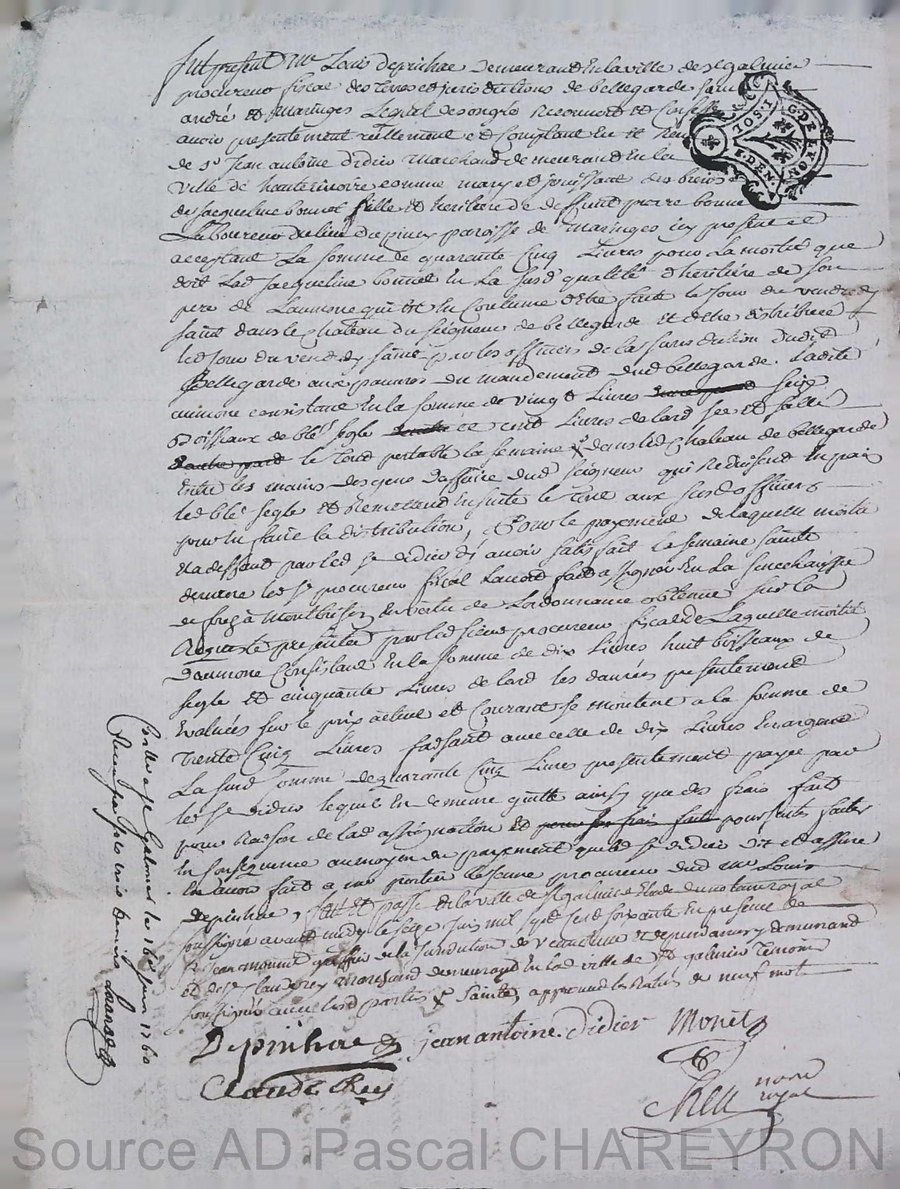 fut present Mr Louis Depinhac Demeurand En la ville de St galmier
procureur fiscal des terres et jurisdictions de bellegarde Saint
andré et Maringes Lequel de son gre Reconnoit et Confesse
avoir presentement reellement et Comptant Eu et Receu
de sr Jean antoine didier Marchand demeurand En la
ville de hauterivoire comme mary et jouissant des biens
de jacqueline bonnet fille et heritiere de deffunt pierre bonnet
Laboureur du lieu du pinet paroisse de Maringes icy present et
acceptant La somme de quarante Cinq Livres pour La moitié que
doit Lad jacqueline bonnet En La susd qualité d'heritiere de son
pere de L'aumone qui est En Coutume d'être faite le jour du vendredy
saint dans le Château du seigneur de bellegarde et d'être distribuée
led jour du vendredy saint par les officiers de la jurisdiction dudit
Bellegarde aux pauvres du mandement dud bellegarde. Ladite
aumone consistant En la somme de vingt Livres seize
Boisseaux de blé segle et cent Livres de lard sec et sallé
le tout portable la semaine dans led Chateau de bellegarde
Entre les mains des gens d'affaire dud seigneur qui Reduisent En pain
led blé segle et Remettent Ensuite le tout aux susd officiers
pour En faire la distribution, Pour le payement de laquelle moitié
par led sr didier d'y avoir satisfait la semaine sainte
derniere led sr procureur fiscal L'auroit fait assigner En La senechaussée
de forez à Montbrison En vertu de L'ordonnance obtenue sur la
Requeste presentée par led sieur procureur fiscal de Laquelle moitié
D'aumone Consistant En la somme de dix Livres huit boisseaux de
segle et cinquante Livres de lard les danrées presentement
Evaluées sur le prix actuel et Courant se montent a la somme de
trente Cinq Livres faisant avec celle de dix Livres En argent
La susd somme de quarante Cinq Livres presentement payée par
led sr didier lequel En demeure quitte ainsy que des frais fait
pour Raison de lad assignation et pour ses frais fait poursuites faites
En Consequence au moyen du payement que led sr didier dit et assure
En avoir fait a Me portier Lejeune procureur dud Me Louis
Depinhac, fait et passé En la ville de St galmier Etude du notaire royal
soussigné avant midy le seize juin mil sept cent soixante En presence de
sr jean monet greffier de la jurisdiction de et demeurand
et de sr Claude rey marchand demeurand En lad ville de St galmier temoins
soussignés avec lesd parties & sainte, approuvé les Ratures de neuf mots
Depinhac jean antoine. didier Monet
Claude Rey
Rey notre
royal
Conllé a St Galmier le 16e juin 1760
Receu
G.DE LYON
1.SOL
4.DEN.
Source AD Pascal CHAREYRON